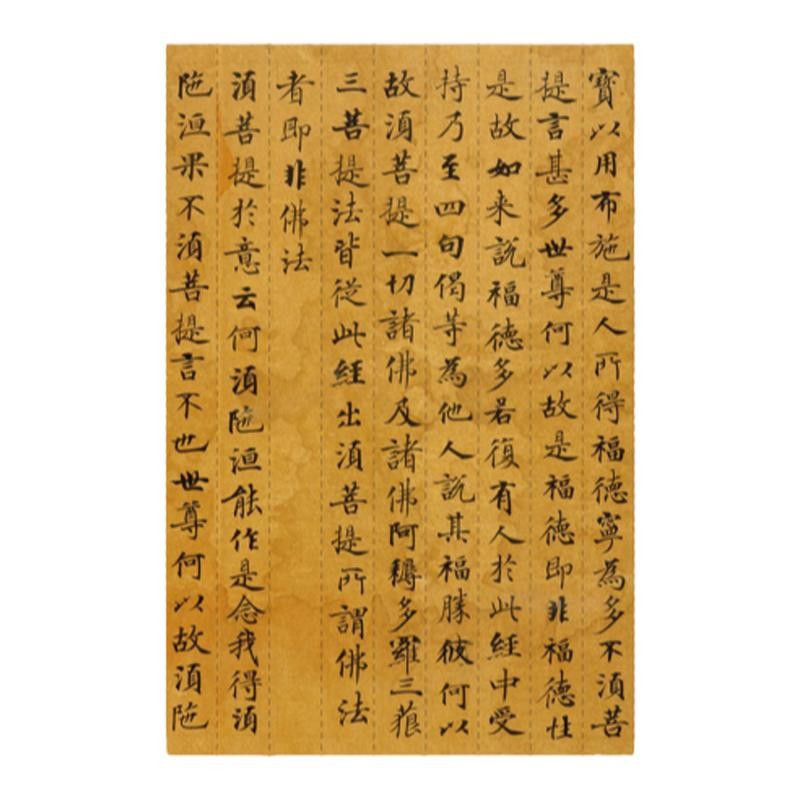 寶以用布施是人所得福德寧為多不湏菩
提言甚多世尊何以故是福德即非福德性
是故如来說福德多若復有人於此經中受
持乃至四句偈等為他人說其福勝彼何以
故湏菩提一切諸佛及諸佛阿耨多羅三藐
三菩提法皆從此經出湏菩提所謂佛法
者即非佛法
湏菩提於意云何湏陁洹能作是念我得湏
陁洹果不湏菩提言不也世尊何以故湏陁